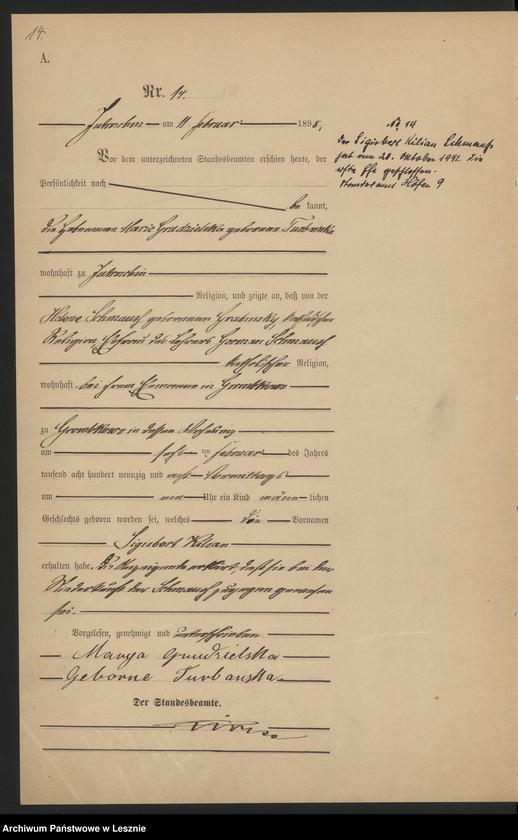 14.
A.
Nr. 14.
Jutroschin am 11 Februar 1898,
Vor dem unterzeichneten Standesbeamten erschien heute, der
Persönlichkeit nach
be kannt,
die Hebamme Marie Grudzielska geborene Turbanska
wohnhaft zu Jutroschin
Religion, und zeigte an, daß von der
Helene Schmauch geborenen Grabinsky, katholischer
Religion, Ehefrau des Lehrers Herman Schmauch
katholischer Religion,
wohnhaft bei ihrem Ehemanne in
zu in dessen Wohnung
am sechs ten Februar des Jahres
tausend acht hundert neunzig und acht Vormittags
um neun Uhr ein Kind männ lichen
Geschlechts geboren worden sei, welches die Vornamen
Sigisbert Kilian
erhalten habe. Die Anzeigende erklärt, daß sie bei der
Niederkunft der Schmauch zugegen gewesen
sei.
Vorgelesen, genehmigt und unterschrieben
Marya Grudzielska
Geborne Turbanska
Der Standesbeamte.
No 14
Der Sigisbert Kilian Schmauch
hat am 20. Oktober 1942 die
erste Ehe geschlossen.
Standesamt Posen 9
Archiwum Państwowe w Lesznie